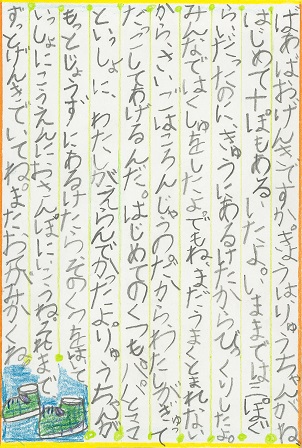 ばあばおげんきですか。きょうはりゅうちゃんがね
はじめて十ぽもあるいたよ。いままでは二ほぐ
らいだったのにきゅうにあるけたからびっくりしたよ。
みんなではくしゅをしたよ。でもね、まだうまくとまれない
からさいごはころんじゃうのだからわたしがぎゅっ
だっこしてあげるんだ。はじめてのくつもパパとママ
といっしょにわたしがえらんでかったよ。りゅうちゃんが
もっとじょうずにあるけたらそのくつをはいて
いっしょにこうえんにおさんぽにいこうねそれまで
ずっとげんきでいてね。またおてがみかくね